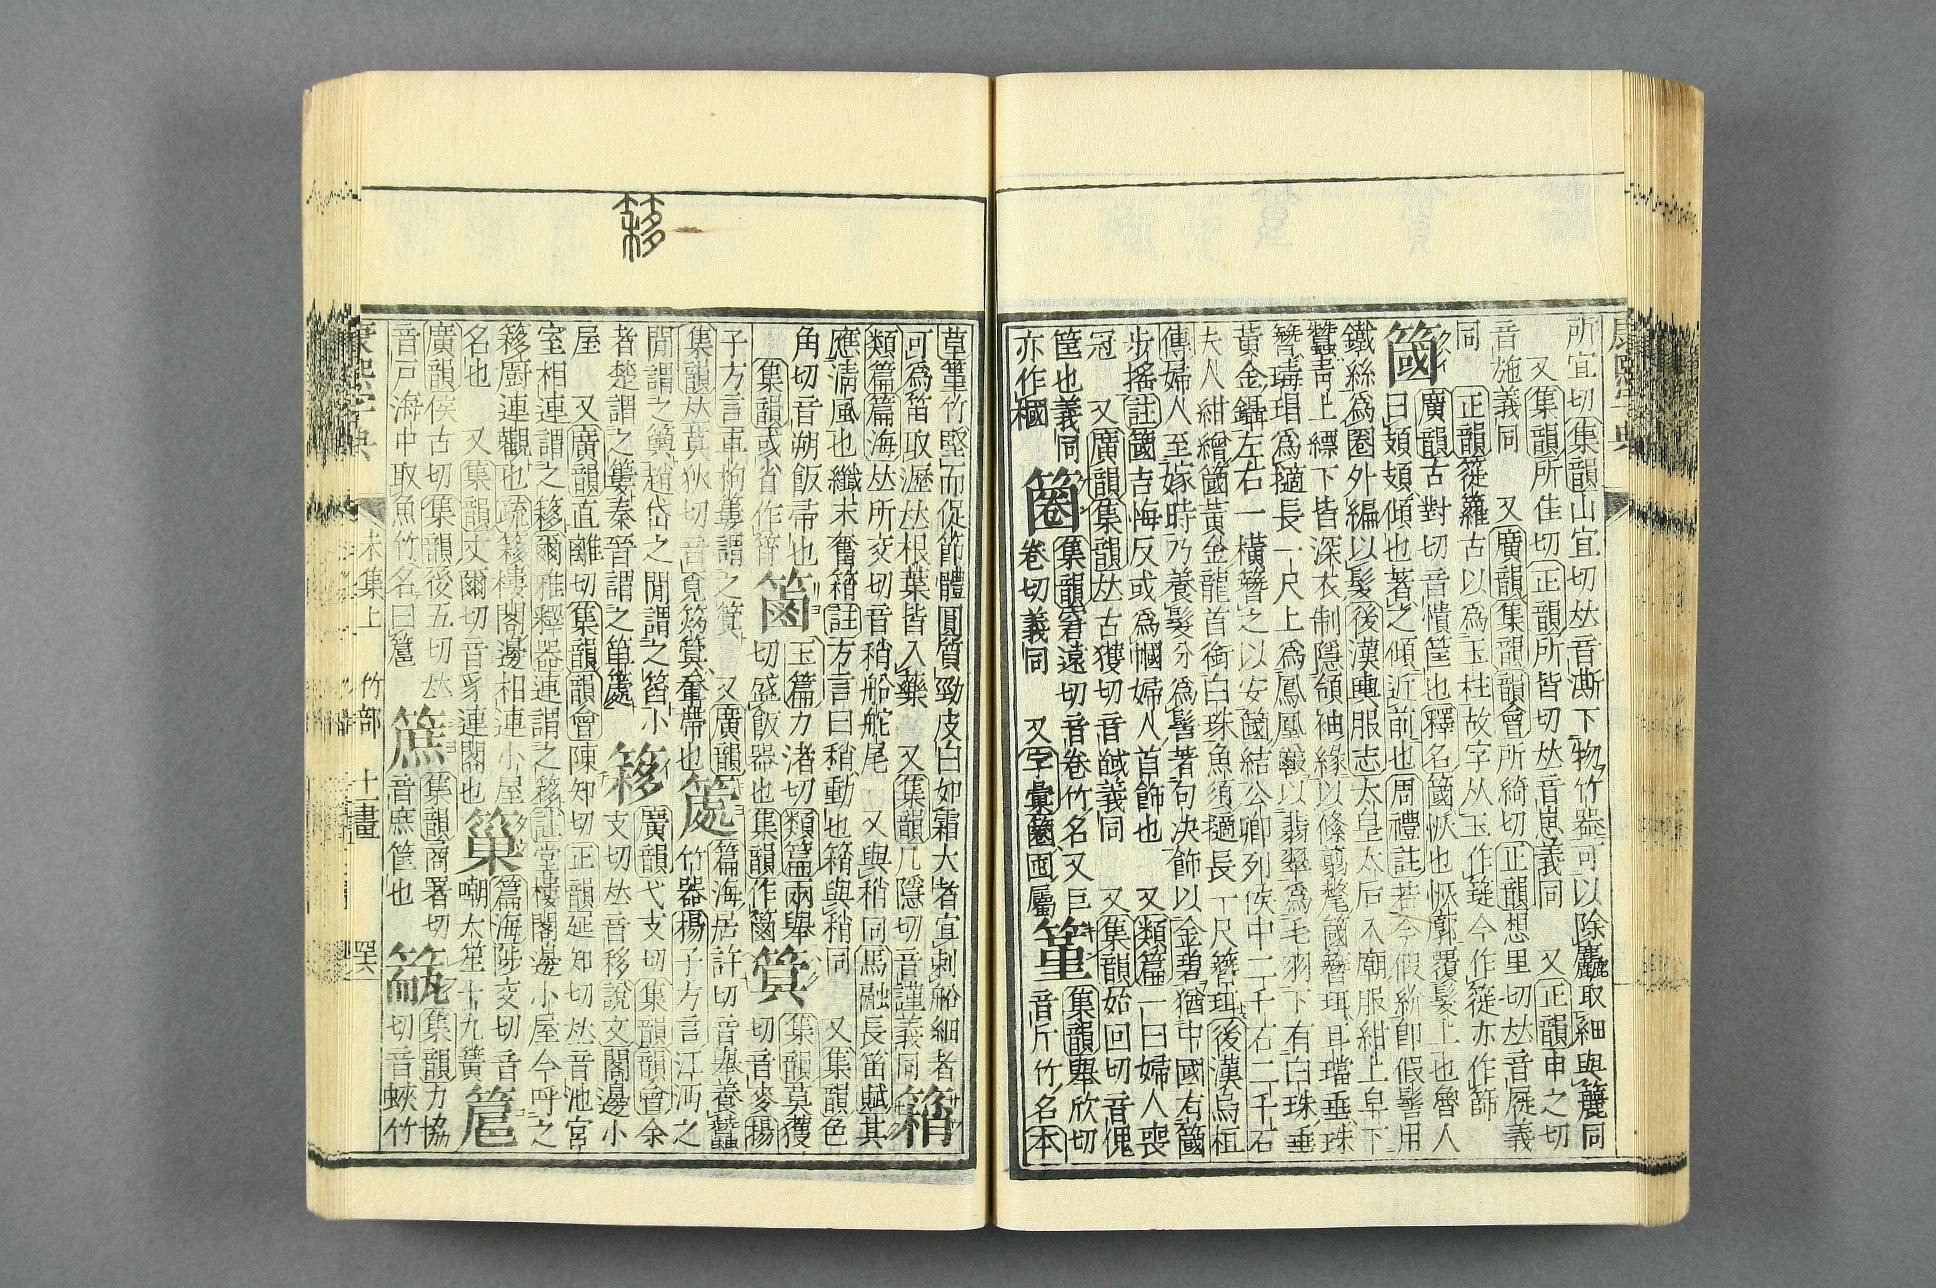 所宜切集韻山宜切𠀤音澌下物竹器可以除麤取細與簏同
又集韻所佳切正韻所皆切𠀤音崽義同 又正韻申之切
音施義同 又廣韻集韻韻會所綺切正韻想里切𠀤音屣義
同 正韻簁籮古以為玉柱故字从玉作今作簁亦作篩
簂
廣韻古對切音憒筐也釋名簂恢也恢廓覆髮上也魯人
曰頍頍傾也著之傾近前也周禮註若今假紒卽假髻用
鐵絲為圈外編以髮後漢輿服志太皇太后入廟服紺上皁下
蠶靑上縹下皆深衣制隱領袖緣以絛翦氂簂簪珥耳璫垂珠
簪瑇瑁為擿長一尺上為鳳凰爵以翡翠為毛羽下有白珠垂
黃金鑷左右一橫簪之以安簂結公卿列侯中二千石二千石
夫人紺繒簂黃金龍首銜白珠魚須擿長一尺簪珥後漢烏桓
傳婦人至嫁時乃養髮分為髻著句決飾以金碧猶中國有簂
步搖註簂吉悔反或為幗婦人首飾也 又類篇一曰婦人喪
冠 又廣韻集韻𠀤古獲切音馘義同 又集韻始回切音傀
筐也義同
圈
集韻窘遠切音卷竹名又巨
卷切義同 又字彙屬
亦作槶
箽
集韻舉欣切
音斤竹名本
草篁竹堅而促節體圓質勁皮白如霜大者宜刺船細者
可為笛取瀝𠀤根葉皆入藥 又集韻几隱切音謹義同
箾
類篇篇海𠀤所交切音稍船舵尾 又與稍同馬融長笛賦其
應淸風也纖末奮箾註方言曰稍動也箾與稍同 又集韻色
角切音朔飯帚也
玉篇力渚切類篇兩舉
切盛飯器也集韻作
集韻或省作筲
集韻莫獲
切音麥揚
子方言車枸簍謂之 又廣韻
集韻𠀤莫狄切音覓筡簟帶也
篇海居許切音舉養蠶
竹器揚子方言江沔之
閒謂之籅趙岱之閒謂之筥小
者楚謂之簍秦晉謂之箄
簃
廣韻弋支切集韻韻會余
支切𠀤音移說文閣邊小
屋 又廣韻直離切集韻韻會陳知切正韻延知切𠀤音池宮
室相連謂之簃爾雅釋器連謂之簃註堂樓閣邊小屋今呼之
簃廚連觀也疏簃樓閣邊相連小屋
名也 又集韻丈爾切音豸連閣也
篇海陟交切音
嘲大笙十九簧
廣韻侯古切集韻後五切𠀤
音戶海中取魚竹名曰
集韻商署切
音庶筐也
集韻力協
切音蛺竹
康熙字典 未集上 竹部 十一畫
康熙字典
簃